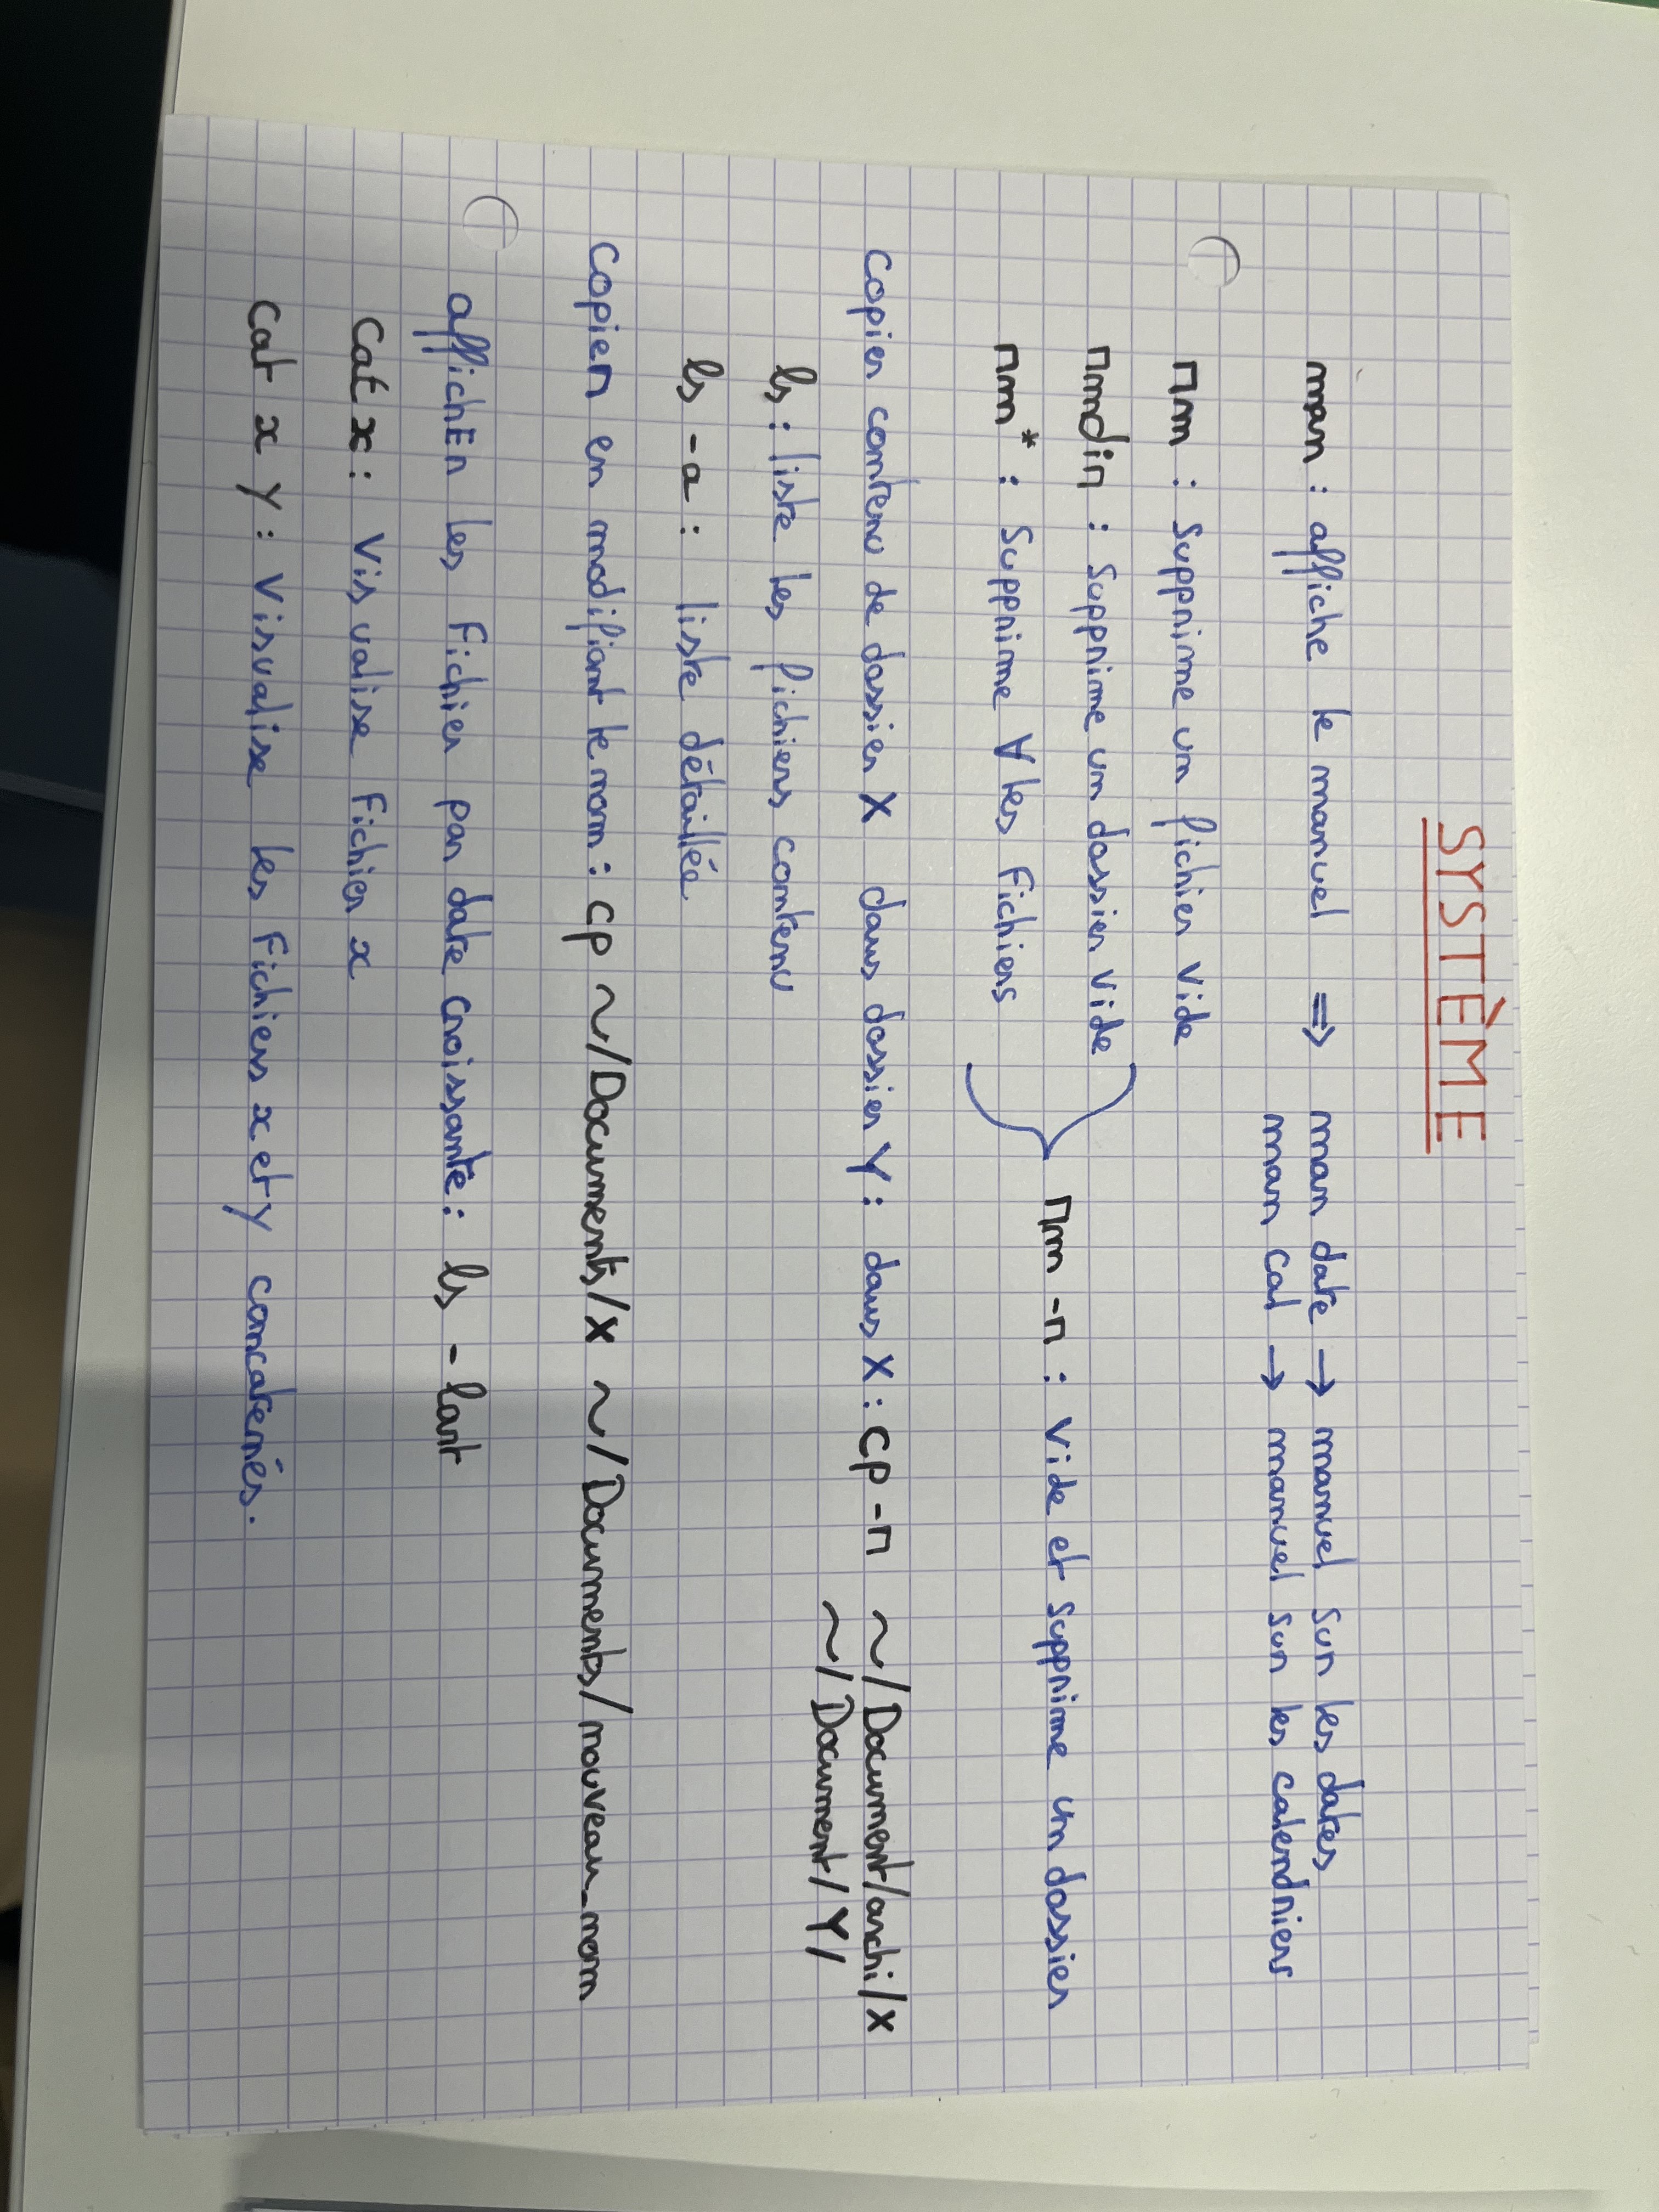 SYSTÈME
man : affiche le manuel ⇒ man date → manuel sur les dates
man cal → manuel sur les calendriers
rm : supprime un fichier vide
rmdir : supprime un dossier vide
rm* : supprime ∀ les fichiers
rm -r : vide et supprime un dossier
Copier contenu de dossier X dans dossier Y : dans X : cp -r ~/Document/archi/X
~/Document/Y/
ls : liste les fichiers contenu
ls -a : liste détaillée
Copier en modifiant le nom : cp ~/Documents/X ~/Documents/nouveau_nom
affichEr les fichier par date croissante : ls -lart
Cat x : Visualise fichier x
Cat x y : Visualise les fichiers x et y concatenés.